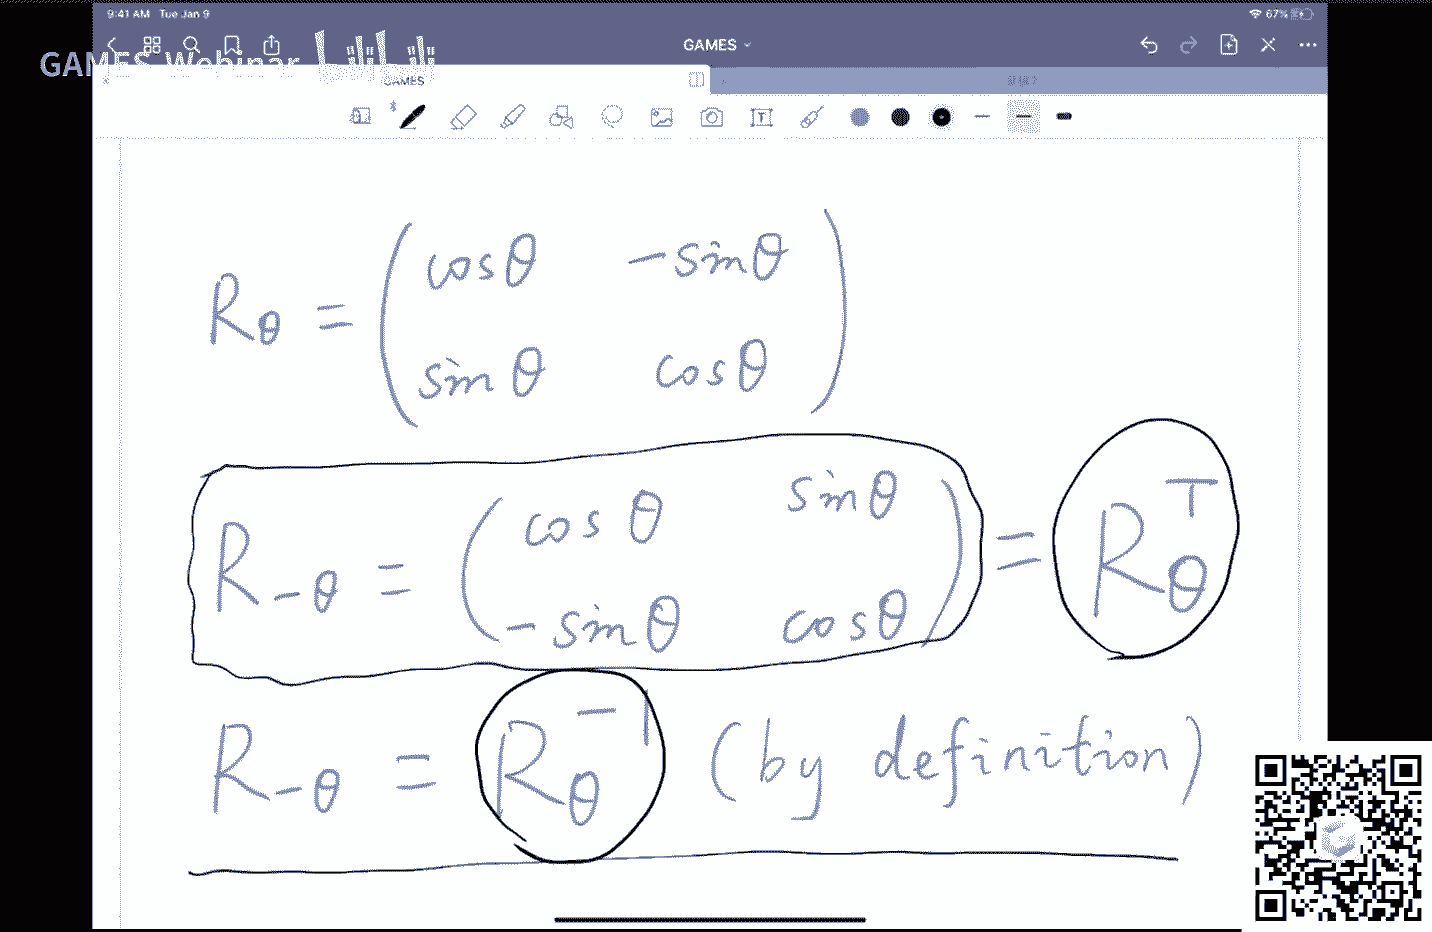 9:41 AM Tue Jan 9
67%
GAMES
GAMES Webinar bilibili
GAMES
T
Rθ = ( cosθ -sinθ
sinθ cosθ )
R-θ = ( cosθ sinθ
-sinθ cosθ ) = Rθ^T
R-θ = Rθ^-1 (by definition)